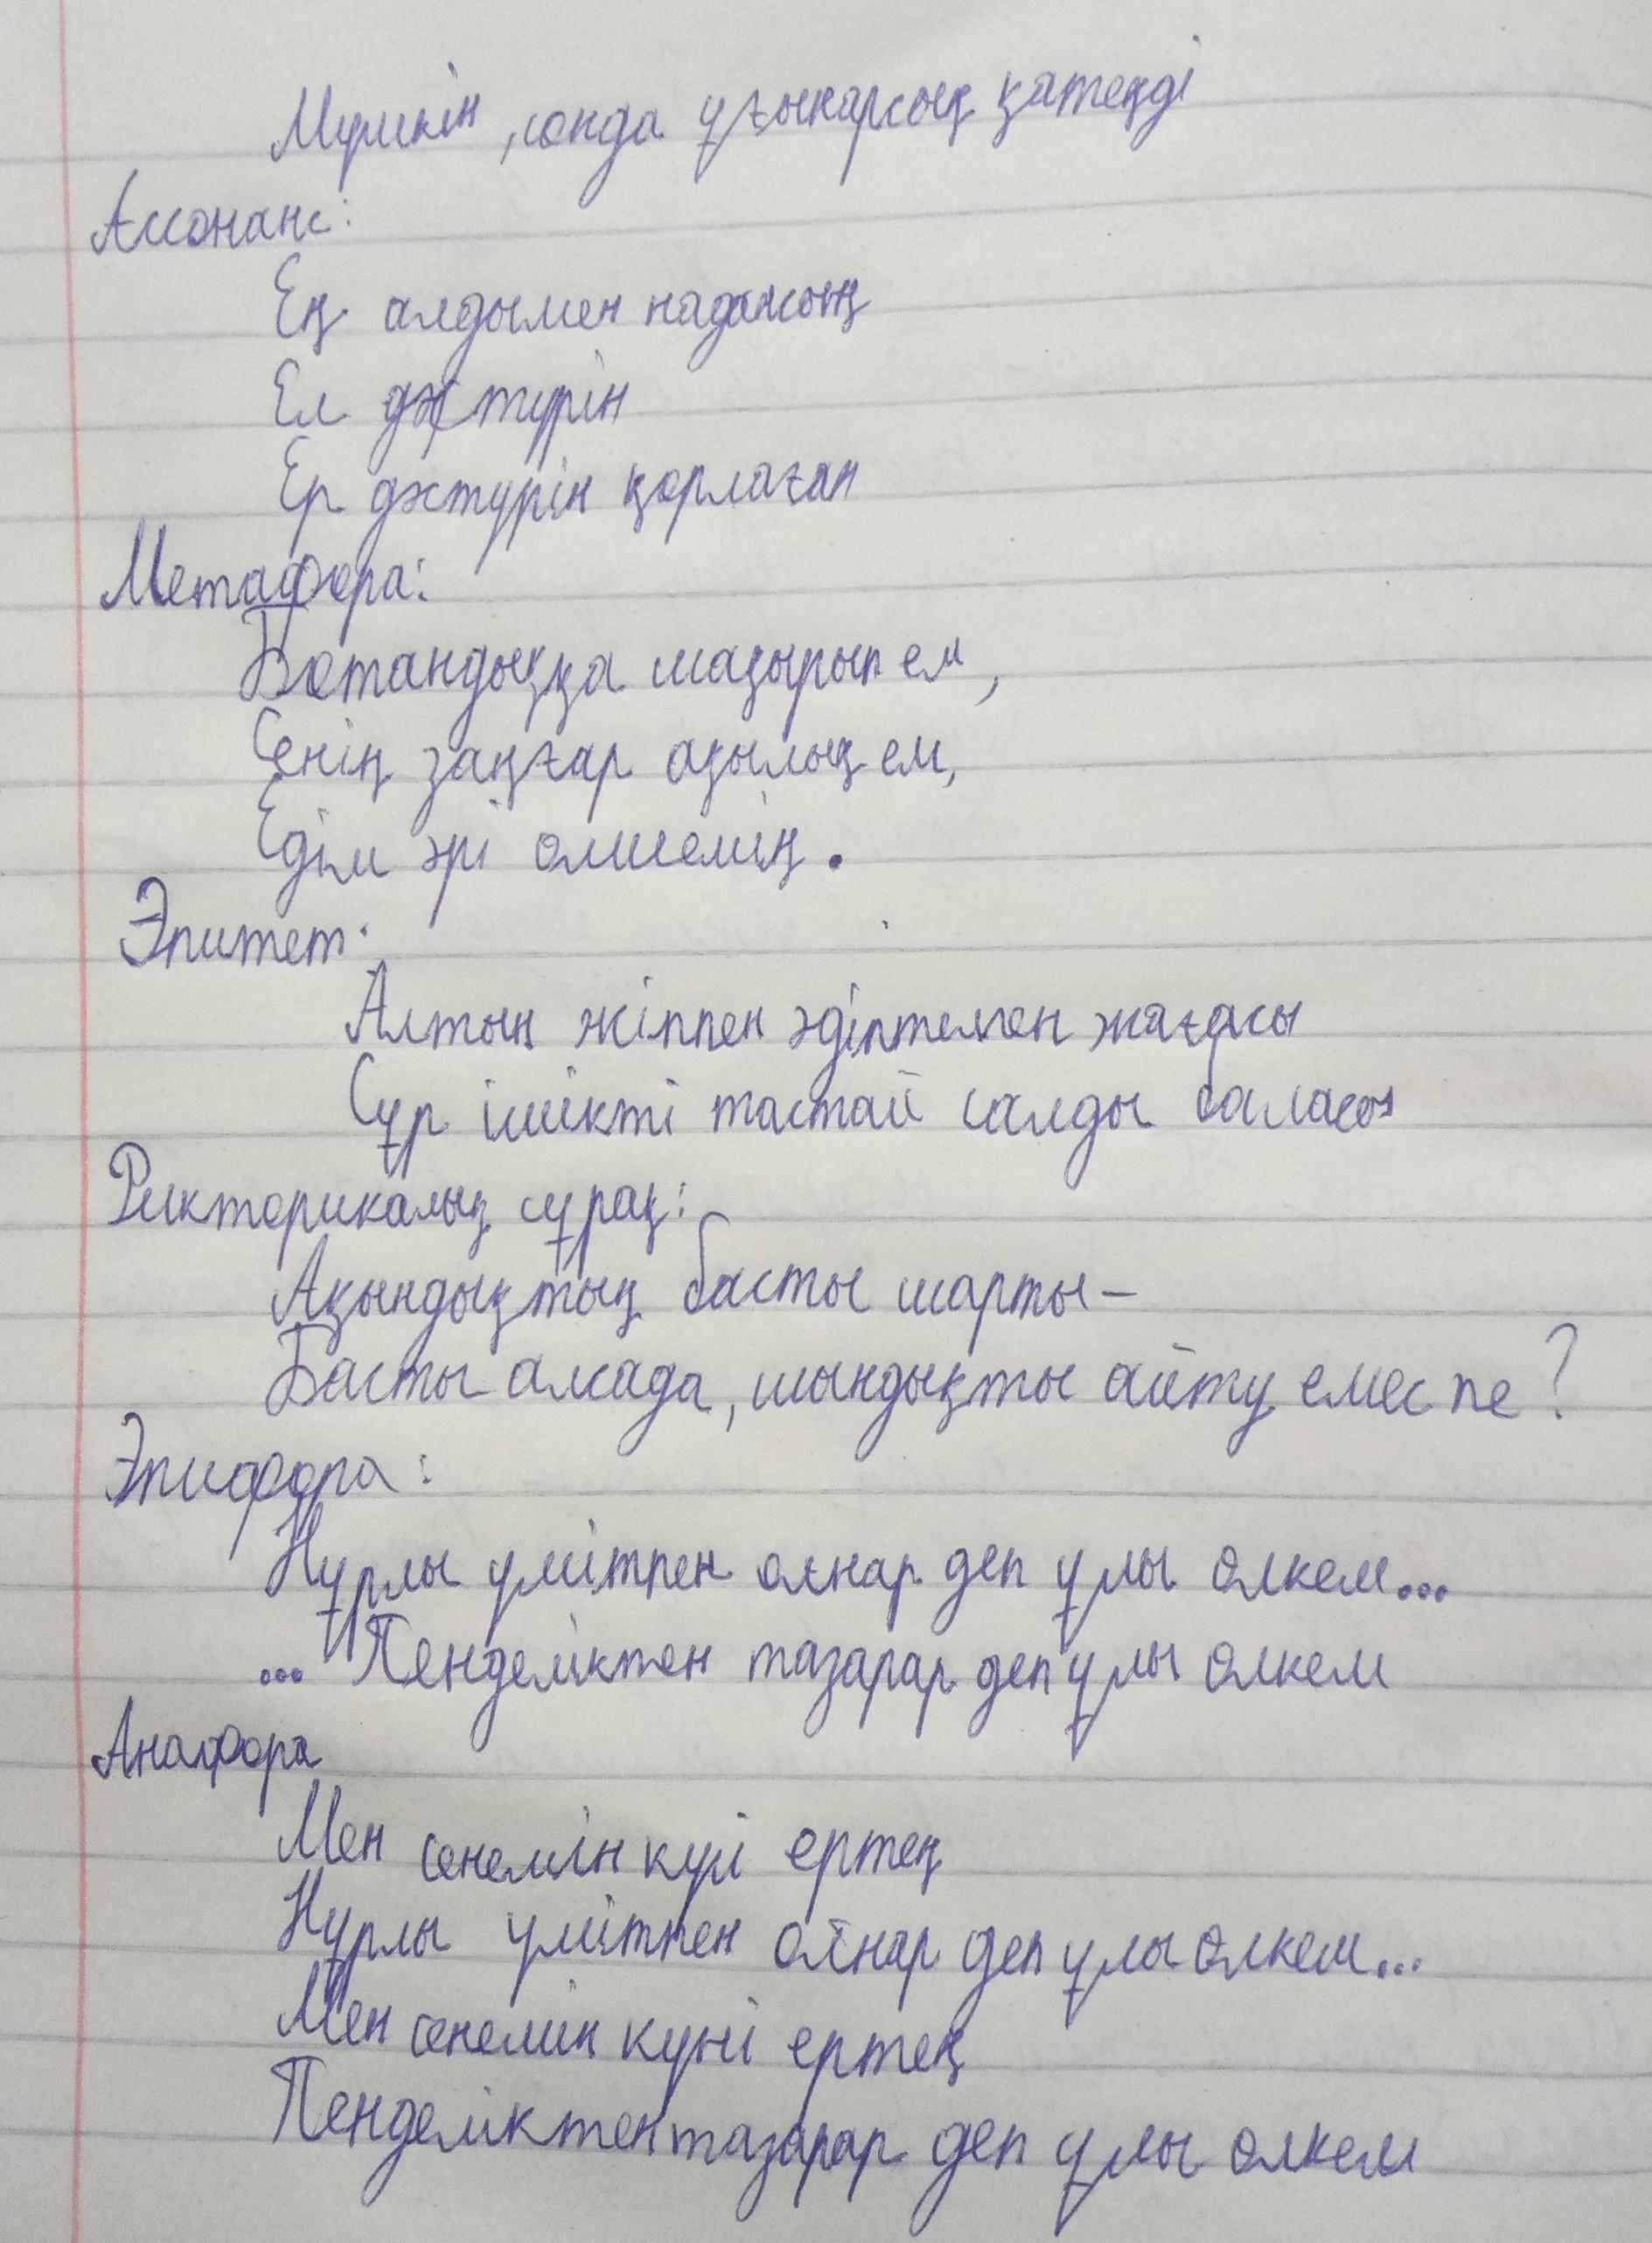 Мүмкін, сонда ұғынарсың қатеңді
Ассонанс:
Ең алдымен надансың
Ел дәстүрін
Ер дәстүрін қорлаған
Метафора:
Ботандыққа шақырып ем,
Сенің заңғар ақылың ем,
Едім әрі өлшемің.
Эпитет:
Алтын жіппен әдіптелген жағасы
Сұр ішікті тастай салды баласы
Рикторикалық сұрақ:
Ақындықтың басты шарты–
Басты алсада, шындықты айту емес пе?
Эпифора:
Нұрлы үмітпен оянар деп ұлы өлкем...
... Пенделіктен тазарар деп ұлы өлкем
Анафора
Мен сенемін күні ертең
Нұрлы үмітпен оянар деп ұлы өлкем...
Мен сенемін күні ертең
Пенделіктен тазарар деп ұлы өлкем